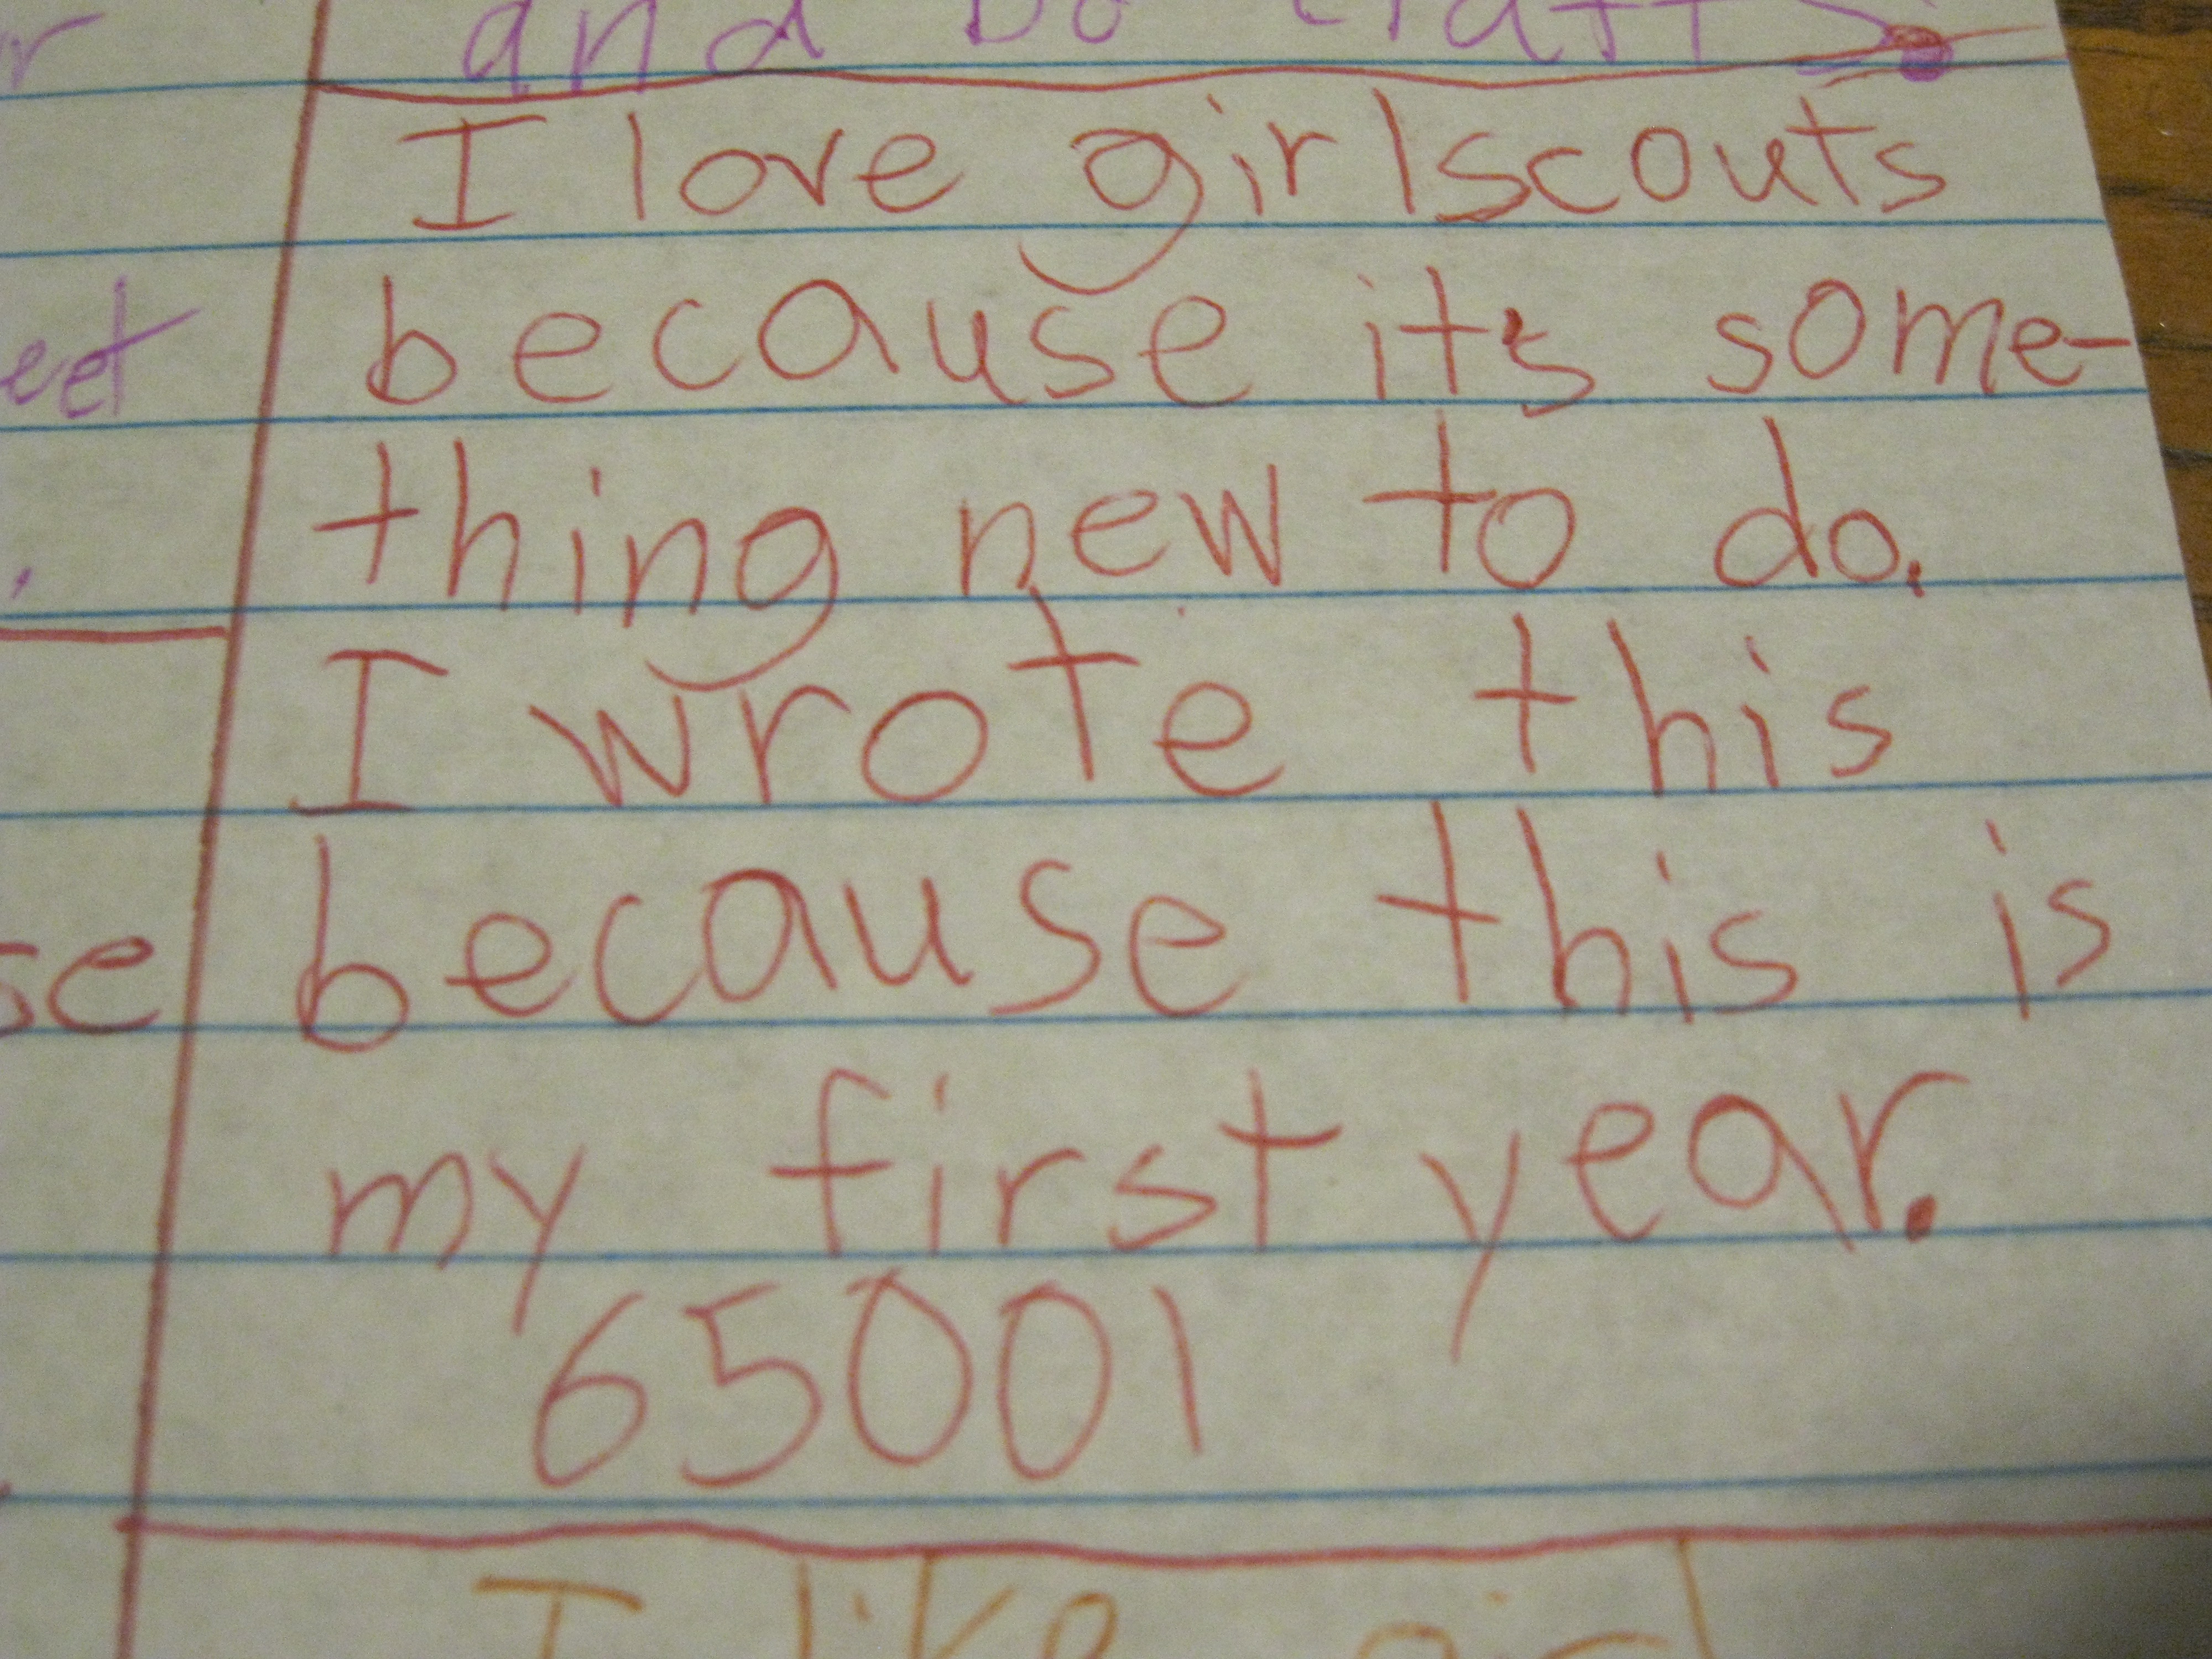 and Do crafts.
I love girlscouts
because it's some-
thing new to do.
I wrote this
because this is
my first year.
65001
I like girl
eet
se